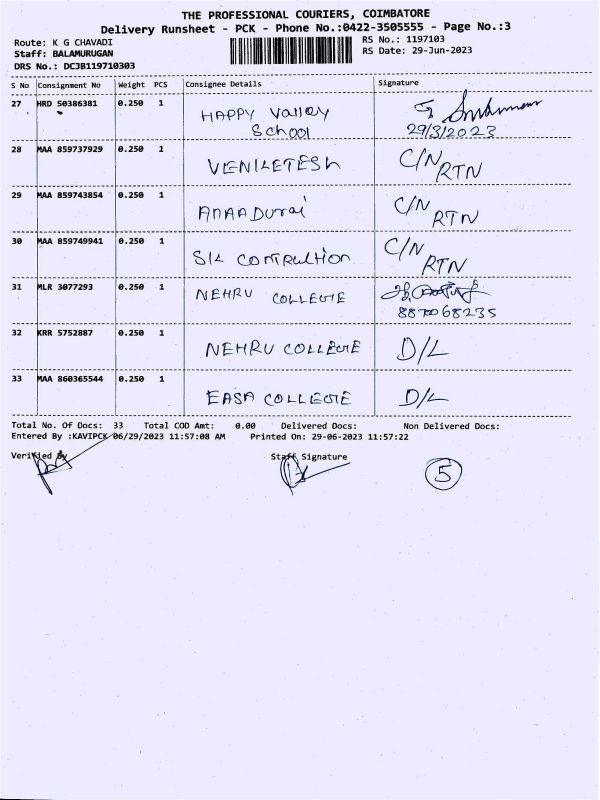 THE PROFESSIONAL COURIERS, COIMBATORE
Delivery Runsheet - PCK - Phone No.:0422-3505555 - Page No.:3
Route: K G CHAVADI RS No.: 1197103
Staff: BALAMURUGAN RS Date: 29-Jun-2023
DRS No.: DCJB119710303
S No Consignment No Weight PCS Consignee Details Signature
27 HRD 50386381 0.250 1 HAPPY Valley
School 29/3/2023
28 MAA 859737929 0.250 1 VENILETESH C/N RTN
29 MAA 859743854 0.250 1 ANAADurai C/N RTN
30 MAA 859749941 0.250 1 C/N RTN
31 MLR 3077293 0.250 1 NEHRU COLLEGE
32 KRR 5752887 0.250 1 NEHRU COLLEGE D/L
33 MAA 860365544 0.250 1 EASA COLLEGE D/L
Total No. Of Docs: 33 Total COD Amt: 0.00 Delivered Docs: Non Delivered Docs:
Entered By :KAVIPCK 06/29/2023 11:57:08 AM Printed On: 29-06-2023 11:57:22
Verified By Staff Signature
5